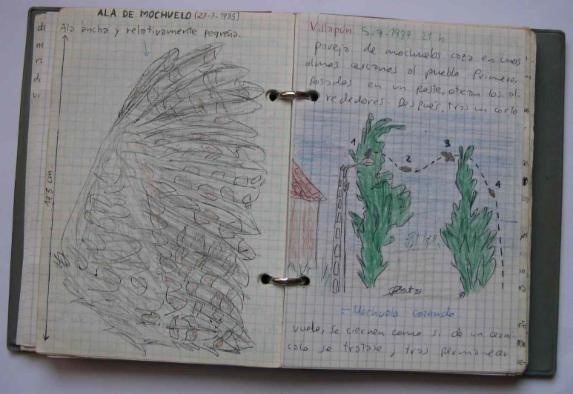 ALA DE MOCHUELO (27-7-1985)
Ala ancha y relativamente pequeña.
17'5 cm.
Villapún 5-7-1987 21 h
pareja de mochuelos caza en unos
olmos cercanos al pueblo. Primero
posados en un poste, otean los al-
rededores. Después, tras un corto
1
2
3
4
Mochuelo cazando
vuelo, se ciernen como si de un cerní-
calo se tratase, tras permanecer